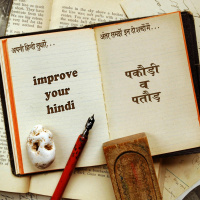 अपनी हिन्दी सुधारें...
improve
your
hindi
अंतर समझें इन देशजों में...
पकौड़ी
व
पतौड़